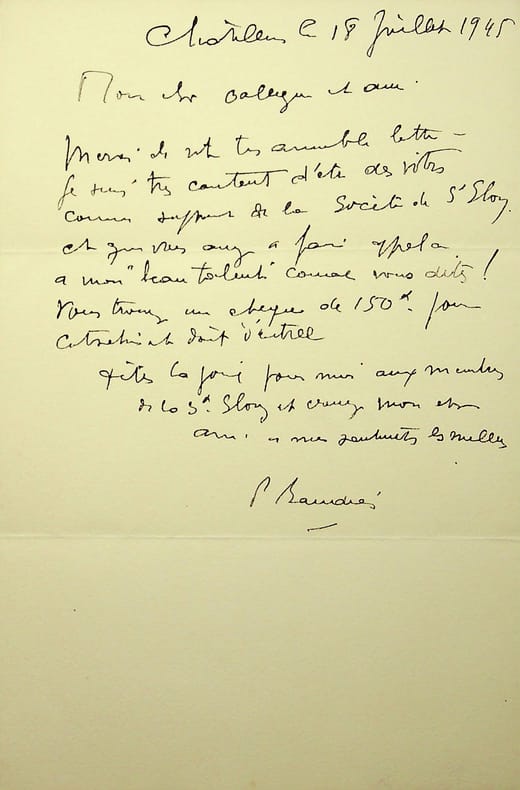 le 18 Juillet 1945
Mon cher collegue et ami.
Merci de votre tres aimable lettre -
Je suis tres content d'etre des votres
comme support de la Société de St Eloy.
et que vous ayez a faire appel a
a mon "beau talent" comme vous dites !
Vous trouvez un cheque de 150 pour
cotisation et doit d'entrée
pour moi aux membres
de la St. Eloy et croyez mon cher
ami a mes sentiments les meilleurs
P